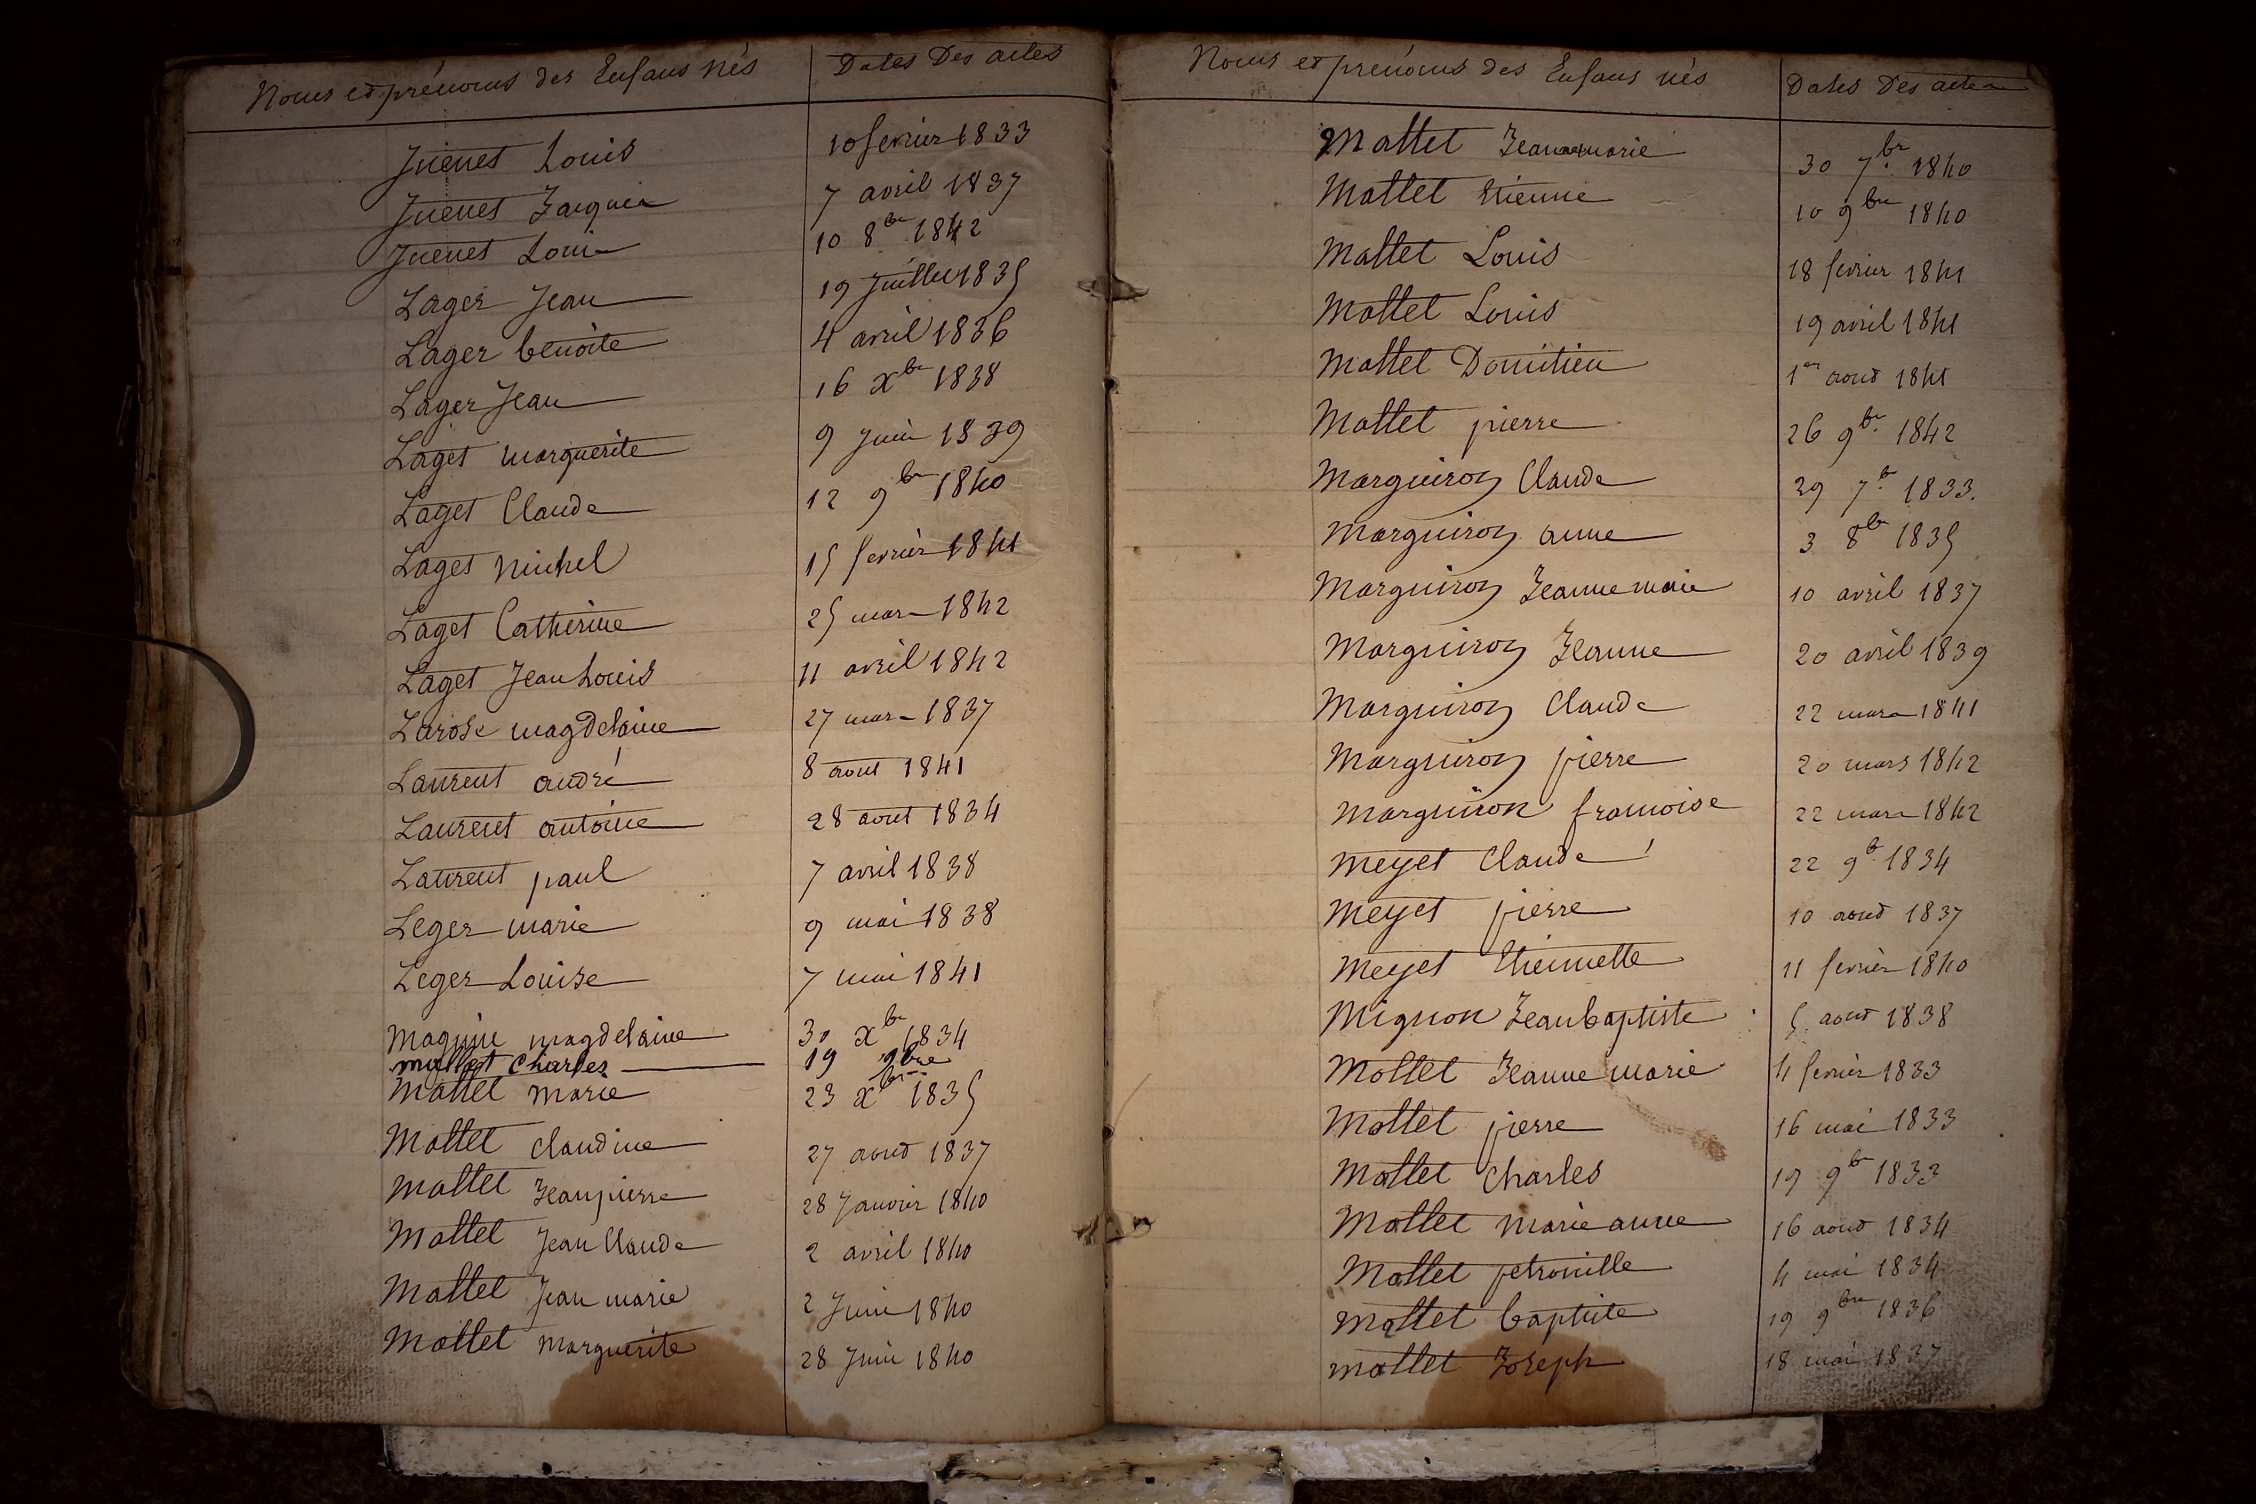 Noms et prénoms des Enfans nés Dates Des actes
Juenet Louis 10 fevrier 1833
Juenet Jacques 7 avril 1837
Juenet Louis 10 8bre 1842
Lager Jean 19 Juillet 1835
Lager benoite 4 avril 1836
Lager Jean 16 Xbre 1838
Laget marguerite 9 Juin 1839
Laget Claude 12 9bre 1840
Laget Michel 15 fevrier 1841
Laget Catherine 25 mars 1842
Laget Jean Louis 11 avril 1842
Larose magdelaine 27 mars 1837
Laurent andré 8 aout 1841
Laurent antoine 28 aout 1834
Laurent paul 7 avril 1838
Leger marie 9 mai 1838
Leger Louise 7 mai 1841
Magnin magdelaine 30 Xbre 1834
mallet Charles 19 9bre
Mallet Marie 23 Xbre 1835
Mallet Claudine 27 aout 1837
Mallet Jean pierre 28 Janvier 1840
Mallet Jean Claude 2 avril 1840
Mallet Jean marie 2 Juin 1840
Mallet Marguerite 28 Juin 1840
Noms et prénoms des Enfans nés Dates Des actes
Mallet Jeanne marie 30 7br. 1840
Mallet Etienne 10 9bre 1840
Mallet Louis 18 fevrier 1841
Mallet Louis 19 avril 1841
Mallet Domitien 1er aout 1841
Mallet pierre 26 9br. 1842
Marguiron Claude 29 7b. 1833.
Marguiron anne 3 8b 1835
Marguiron Jeanne marie 10 avril 1837
Marguiron Jeanne 20 avril 1839
Marguiron Claude 22 mars 1841
Marguiron pierre 20 mars 1842
Marguiron francoise 22 mars 1842
Meyet Claude 22 9b. 1834
Meyet pierre 10 aout 1837
Meyet Etiennette 11 fevrier 1840
Mignon Jean baptiste 5 aout 1838
Mollet Jeanne marie 4 fevrier 1833
Mollet pierre 16 mai 1833
Mallet Charles 19 9br 1833
Mallet Marie anne 16 aout 1834
Mallet petronille 4 mai 1834
Mallet baptiste 19 9bre 1836
Mallet Joseph 18 mai 1837